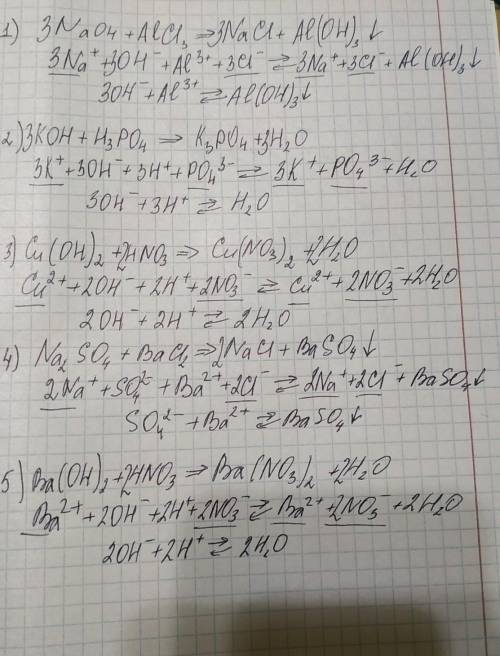 1) 3NaOH + AlCl₃ ⇒ 3NaCl + Al(OH)₃↓
3Na⁺ + 3OH⁻ + Al³⁺ + 3Cl⁻ ⇄ 3Na⁺ + 3Cl⁻ + Al(OH)₃↓
3OH⁻ + Al³⁺ ⇄ Al(OH)₃↓
2) 3KOH + H₃PO₄ ⇒ K₃PO₄ + 3H₂O
3K⁺ + 3OH⁻ + 3H⁺ + PO₄³⁻ ⇄ 3K⁺ + PO₄³⁻ + H₂O
3OH⁻ + 3H⁺ ⇄ H₂O
3) Cu(OH)₂ + 2HNO₃ ⇒ Cu(NO₃)₂ + 2H₂O
Cu²⁺ + 2OH⁻ + 2H⁺ + 2NO₃⁻ ⇄ Cu²⁺ + 2NO₃⁻ + 2H₂O
2OH⁻ + 2H⁺ ⇄ 2H₂O
4) Na₂SO₄ + BaCl₂ ⇒ 2NaCl + BaSO₄↓
2Na⁺ + SO₄²⁻ + Ba²⁺ + 2Cl⁻ ⇄ 2Na⁺ + 2Cl⁻ + BaSO₄↓
SO₄²⁻ + Ba²⁺ ⇄ BaSO₄↓
5) Ba(OH)₂ + 2HNO₃ ⇒ Ba(NO₃)₂ + 2H₂O
Ba²⁺ + 2OH⁻ + 2H⁺ + 2NO₃⁻ ⇄ Ba²⁺ + 2NO₃⁻ + 2H₂O
2OH⁻ + 2H⁺ ⇄ 2H₂O